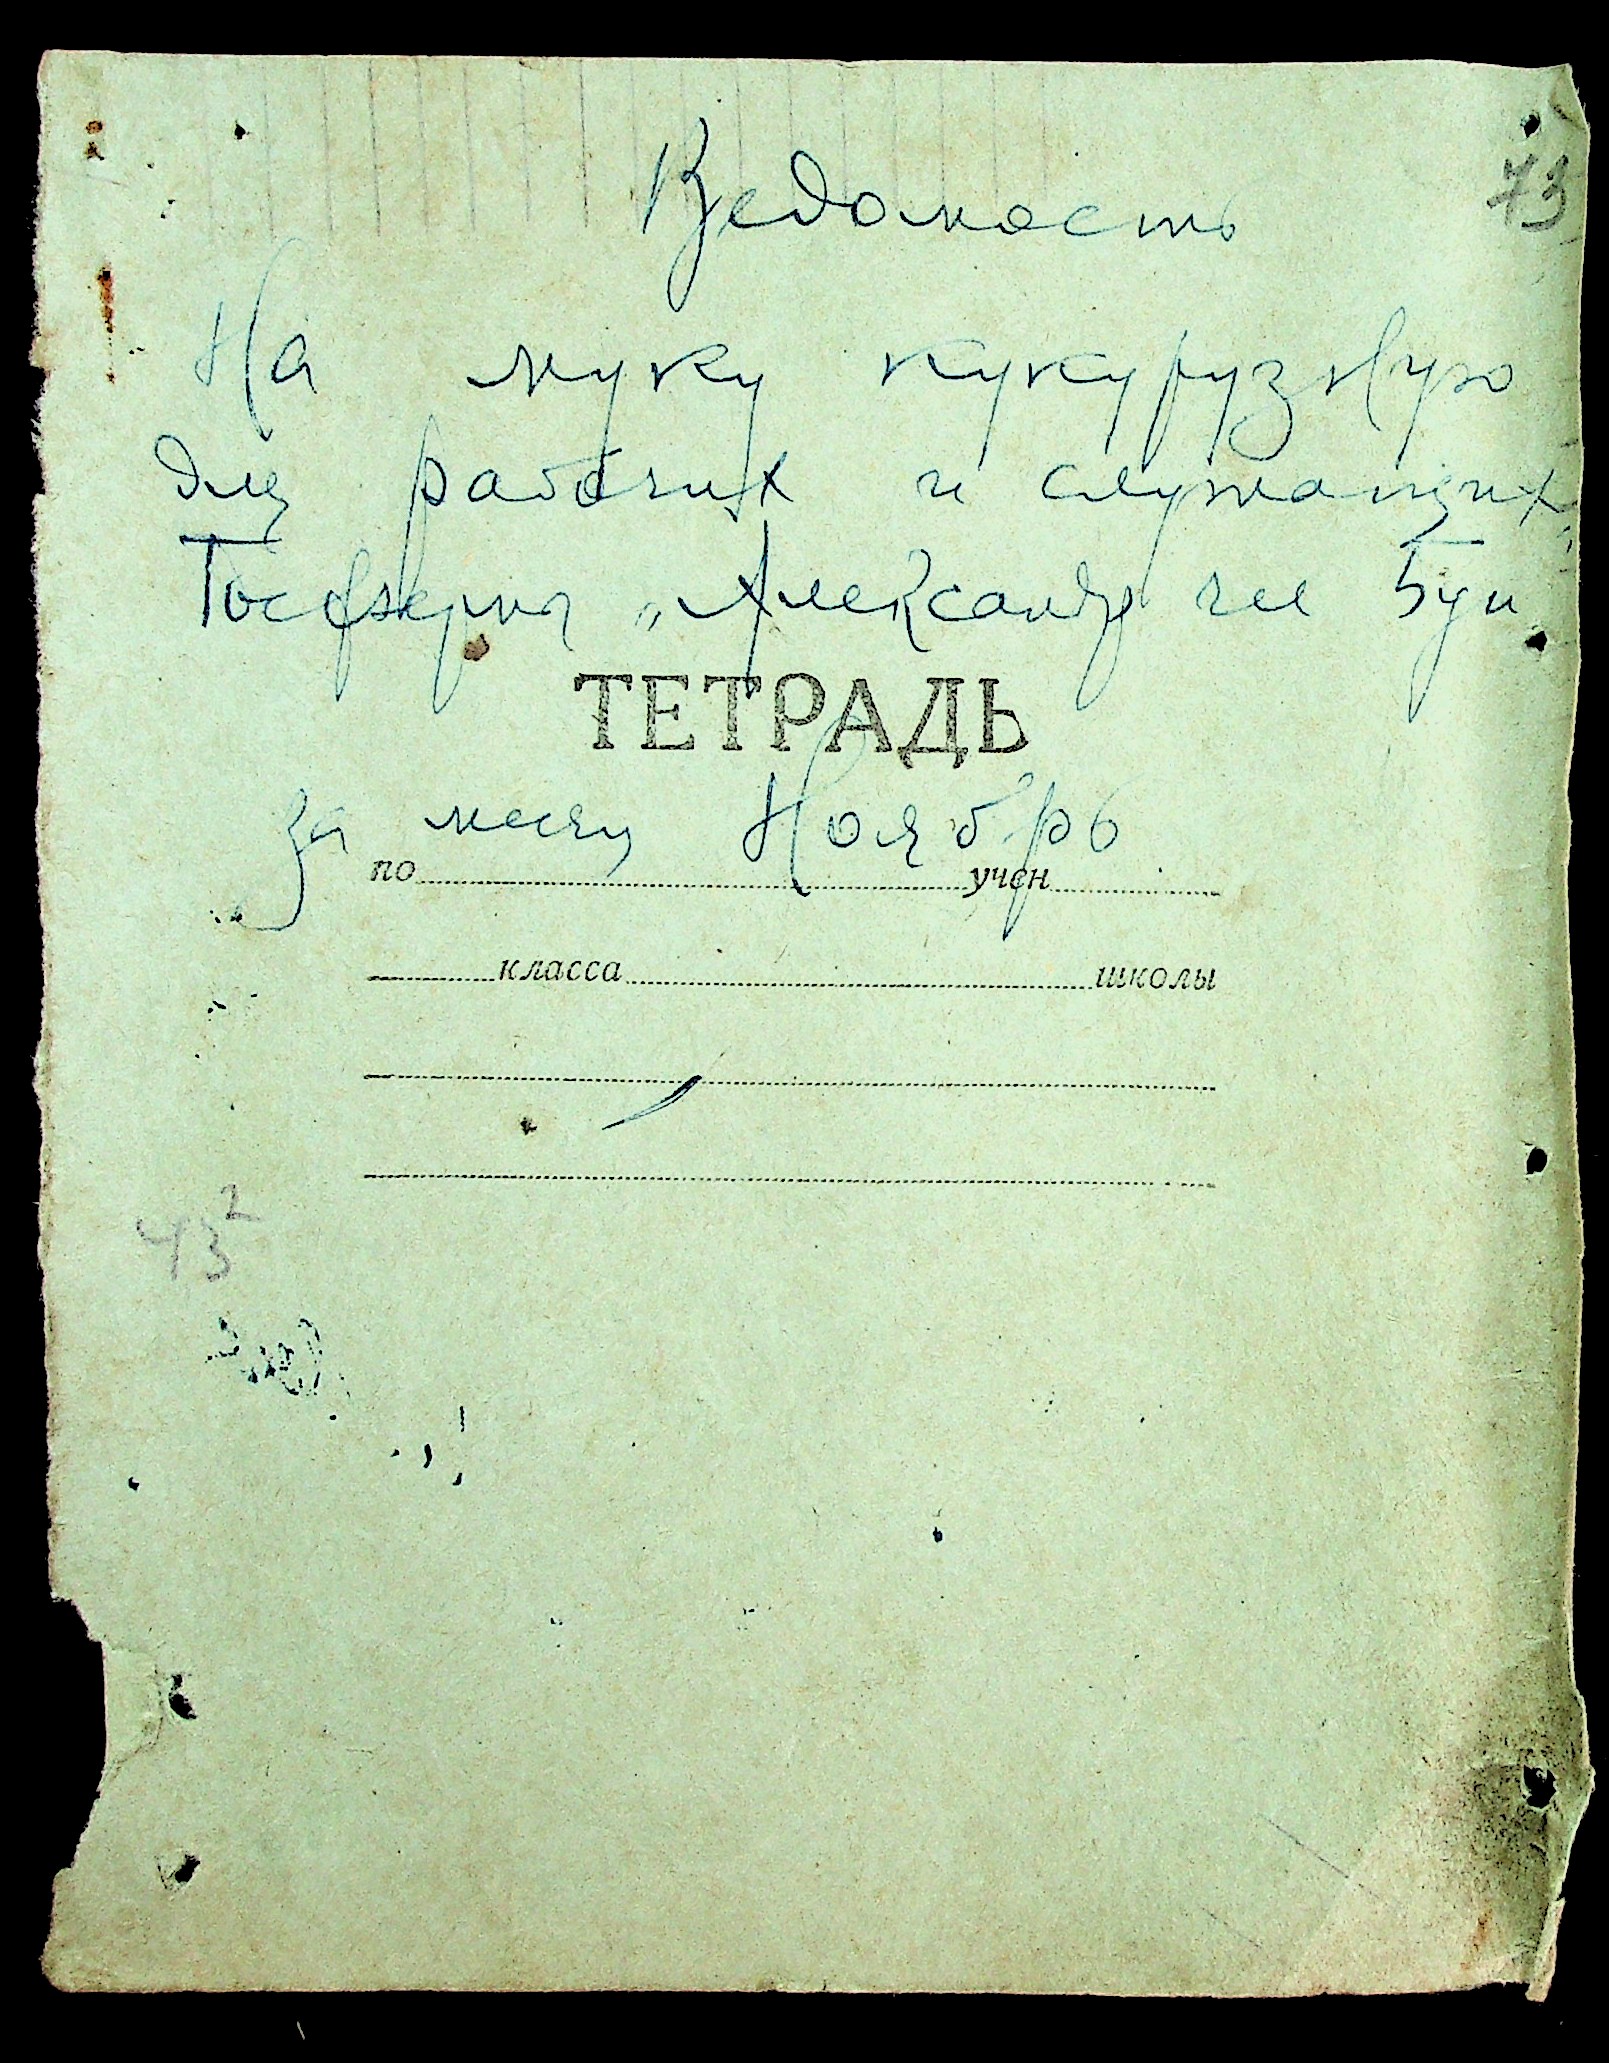 73
Ведомость
На муку кукурузную
для рабочих и служащих
Госферма „Александр чел Буи
ТЕТРАДЬ
за месяц Ноябрь
по учен
класса школы
43²